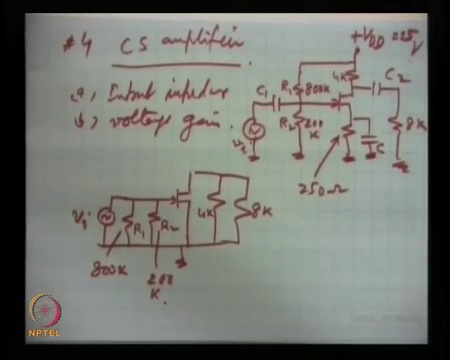 #4 CS amplifier
a, Input impedance
b, voltage gain.
+VDD = 25V
4K
C2
C1
R1
800K
R2
200
K
8K
C
Vi
250Ω
Vi
R1
R2
4K
8K
800K
200
K.
NPTEL